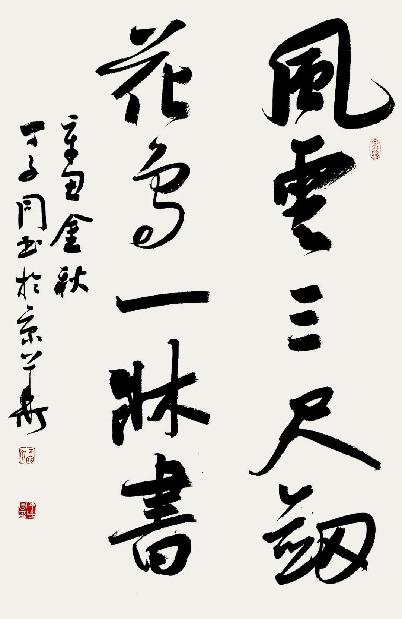 風雲三尺劔
花鳥一牀書
辛丑金秋
丁子同书於京華